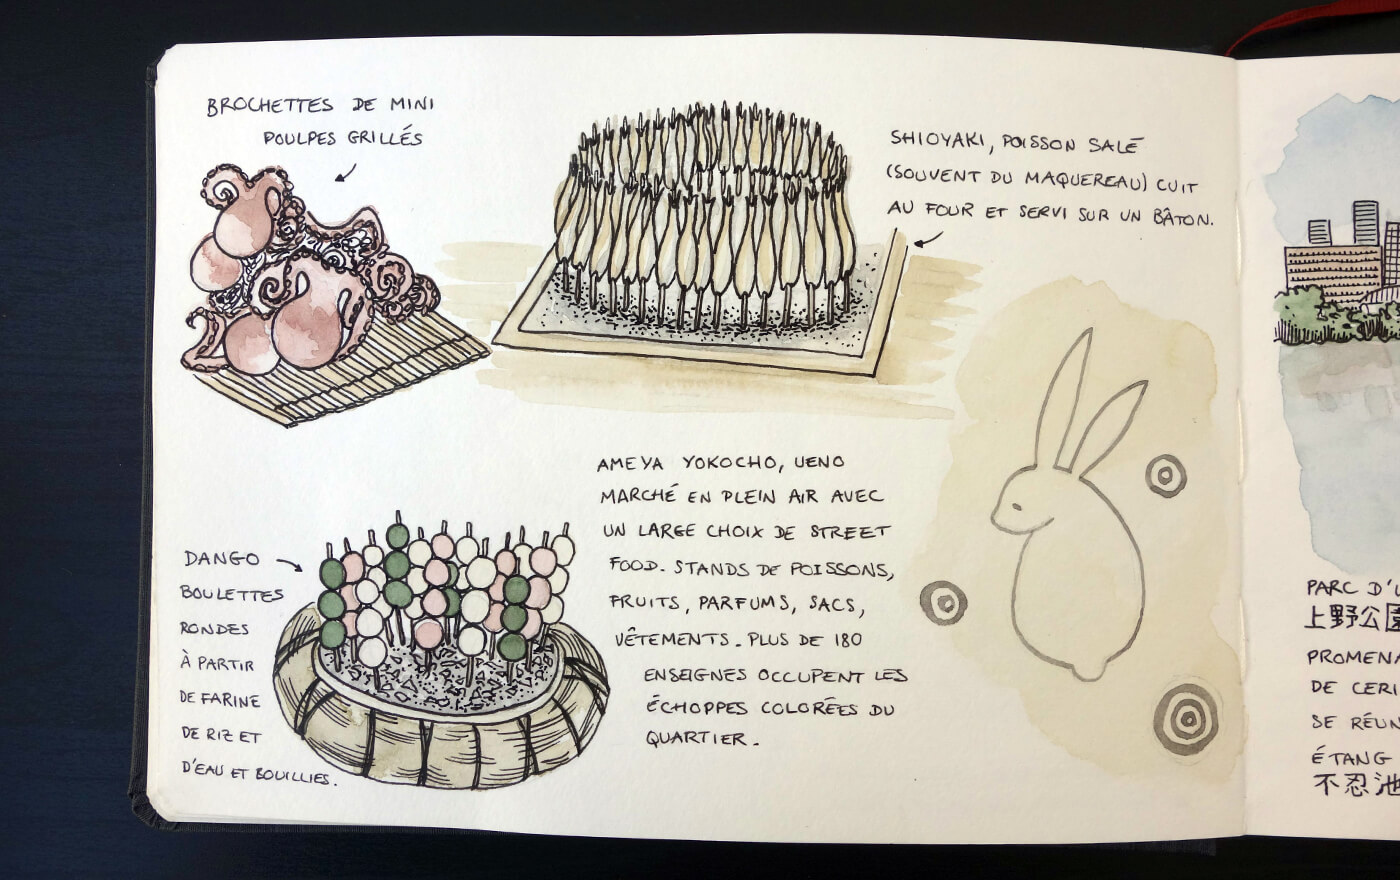 BROCHETTES DE MINI
POULPES GRILLÉS
SHIOYAKI, POISSON SALÉ
(SOUVENT DU MAQUEREAU) CUIT
AU FOUR ET SERVI SUR UN BÂTON.
DANGO
BOULETTES
RONDES
À PARTIR
DE FARINE
DE RIZ ET
D'EAU ET BOUILLIES.
AMEYA YOKOCHO, UENO
MARCHÉ EN PLEIN AIR AVEC
UN LARGE CHOIX DE STREET
FOOD. STANDS DE POISSONS,
FRUITS, PARFUMS, SACS,
VÊTEMENTS. PLUS DE 180
ENSEIGNES OCCUPENT LES
ÉCHOPPES COLORÉES DU
QUARTIER.
PARC D'U
上野公園
PROMENA
DE CERI
SE RÉUN
ÉTANG
不忍池